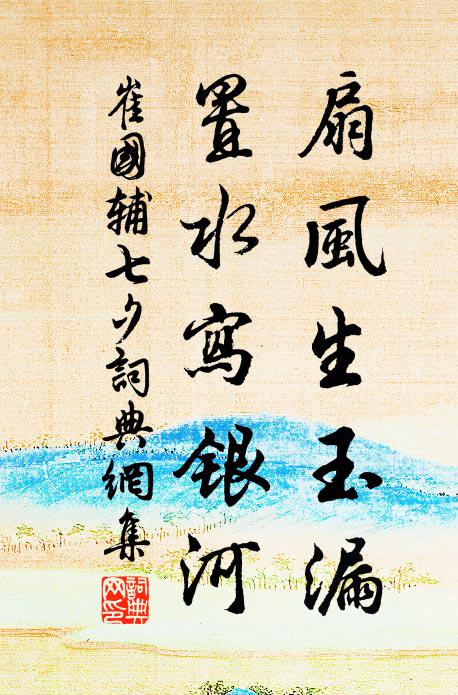 扇風生玉漏
置水寫銀河
崔國輔七夕詞典網集
詞典網印